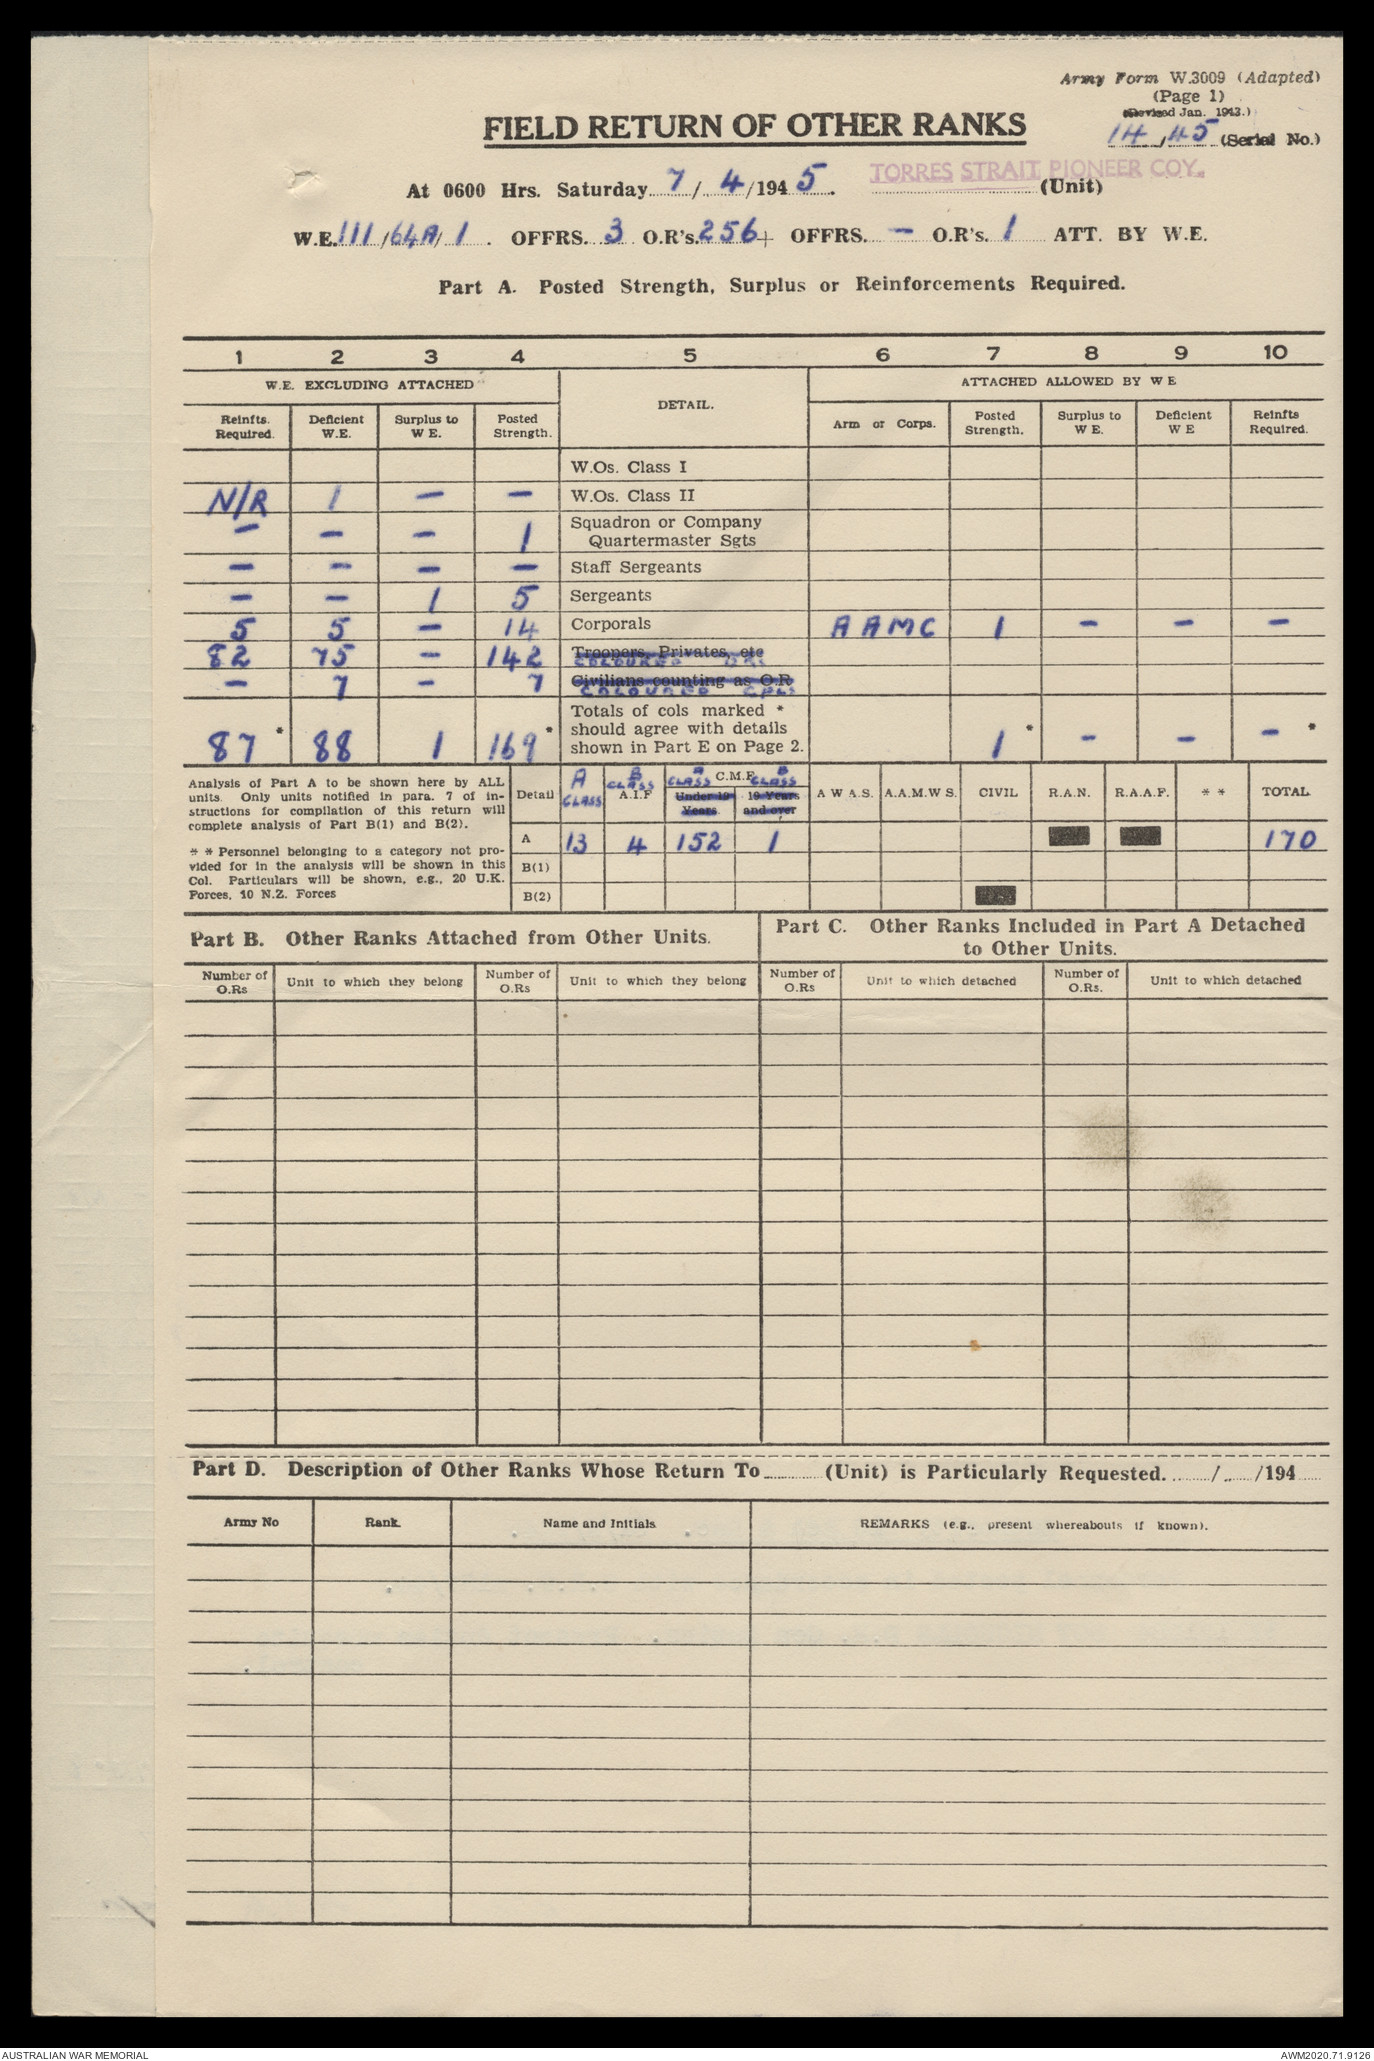 Army Form W.3009 (Adapted)
(Page 1)
(Revised Jan. 1943.)
14/45 (Serial No.)
FIELD RETURN OF OTHER RANKS
At 0600 Hrs. Saturday 7/4/1945. TORRES STRAIT PIONEER COY. (Unit)
W.E. 111/64A/1. OFFRS. 3 O.R's. 256+ OFFRS. — O.R's. 1 ATT. BY W.E.
Part A. Posted Strength, Surplus or Reinforcements Required.
1 2 3 4 5 6 7 8 9 10
W.E. EXCLUDING ATTACHED DETAIL. ATTACHED ALLOWED BY W E
Reinfts. Required. Deficient W.E. Surplus to W E. Posted Strength. Arm or Corps. Posted Strength. Surplus to W E. Deficient W E Reinfts Required.
W.Os. Class I
N/R 1 — — W.Os. Class II
— — — 1 Squadron or Company Quartermaster Sgts
— — — — Staff Sergeants
— — 1 5 Sergeants
5 5 — 14 Corporals AAMC 1 — — —
82 75 — 142 Troopers, Privates, etc COLOURED ORs
— 7 — 7 Civilians counting as O.R COLOURED CPLS
Totals of cols marked *
should agree with details
87 * 88 1 169 * shown in Part E on Page 2. 1 * — — — *
Analysis of Part A to be shown here by ALL
units. Only units notified in para. 7 of in-
structions for compilation of this return will
complete analysis of Part B(1) and B(2).
* * Personnel belonging to a category not pro-
vided for in the analysis will be shown in this
Col. Particulars will be shown, e.g., 20 U.K.
Forces, 10 N.Z. Forces
Detail A CLASS B CLASS A.I.F A CLASS C.M.F. B CLASS Under 19 Years. 19 Years and over A W A S. A.A.M.W S. CIVIL R.A.N. R.A.A.F. * * TOTAL
A 13 4 152 1 170
B(1)
B(2)
Part B. Other Ranks Attached from Other Units.
Part C. Other Ranks Included in Part A Detached
to Other Units.
Number of O.Rs Unit to which they belong Number of O.Rs Unit to which they belong Number of O.Rs Unit to which detached Number of O.Rs. Unit to which detached
Part D. Description of Other Ranks Whose Return To (Unit) is Particularly Requested. / /194
Army No Rank. Name and Initials REMARKS (e.g., present whereabouts if known).
AUSTRALIAN WAR MEMORIAL AWM2020.71.9126